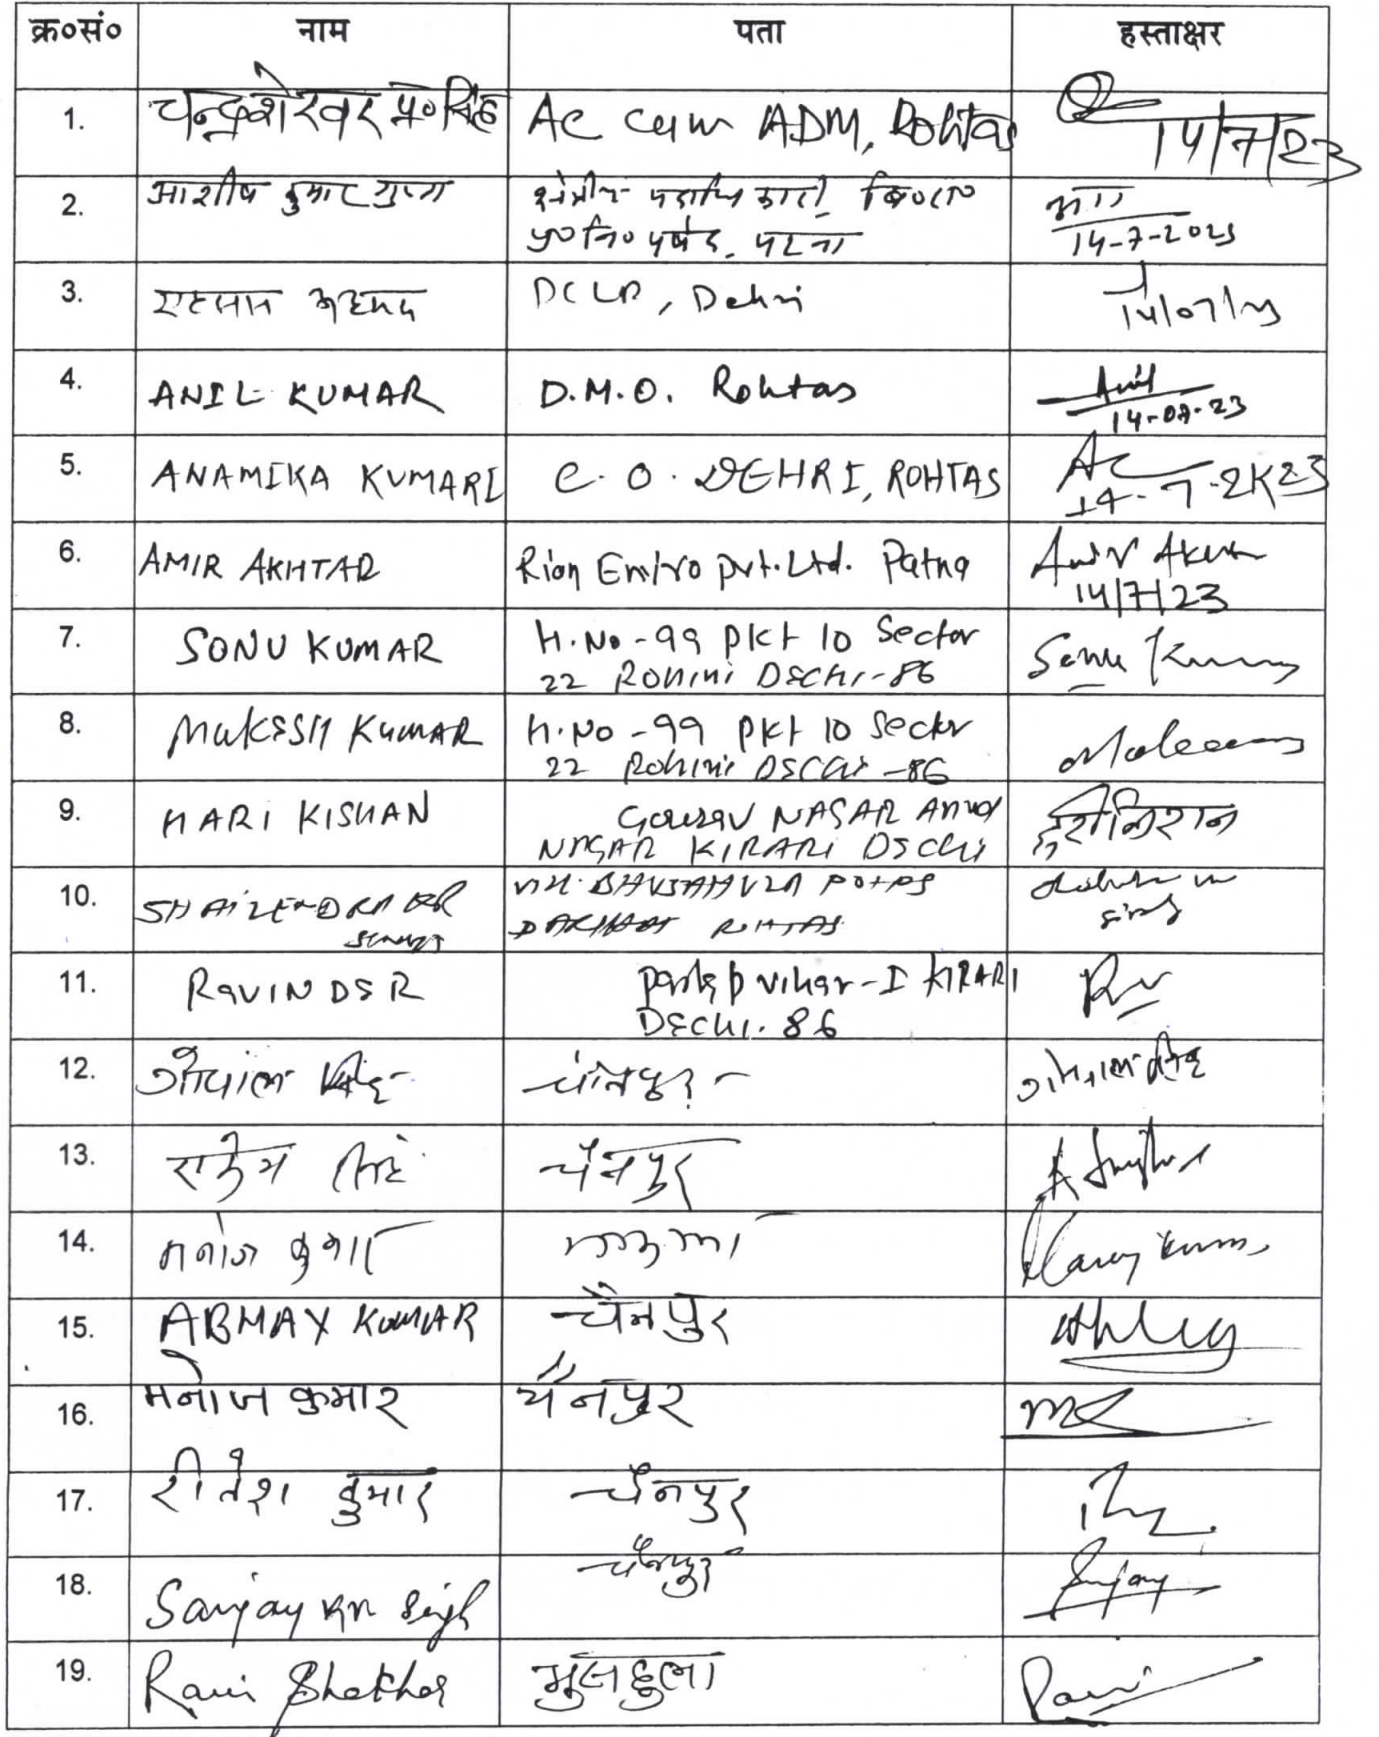 क्र०सं० नाम पता हस्ताक्षर
1. चन्द्रशेखर प्र० सिंह AC cum ADM, Rohtas 14/7/23
2. आशीष कुमार गुप्ता क्षेत्रीय पदाधिकारी, बि०रा०
प्र०नि० पर्षद, पटना 14-7-2023
3. एहसान अहमद DCLR, Dehri 14/07/23
4. ANIL KUMAR D.M.O. Rohtas Anil
14-07-23
5. ANAMIKA KUMARI C.O. DEHRI, ROHTAS
14-7-2K23
6. AMIR AKHTAR Rion Enviro Pvt. Ltd. Patna Amir Akhtar
14/7/23
7. SONU KUMAR H.No-99 Pkt 10 Sector Sonu Kumar
22 Rohini Delhi-86
8. MUKESH KUMAR H.No-99 Pkt 10 Sector
22 Rohini Delhi-86
9. HARI KISHAN Gaurav NAGAR
NAGAR KIRARI Delhi हरीकिशन
10. SHAILENDRA KR
ROHTAS
11. RAVINDER Partap vihar-I KIRARI
Delhi. 86
12. गोपाल सिंह चैनपुर गोपाल सिंह
13. राकेश सिंह चैनपुर
14. मनोज कुमार Manoj Kumar
15. ABHAY KUMAR चैनपुर Abhay
16. मनोज कुमार चैनपुर MK
17. रीतेश कुमार चैनपुर
18. Sanjay Kr Singh चैनपुर Sanjay
19. Ravi Shekhar Ravi